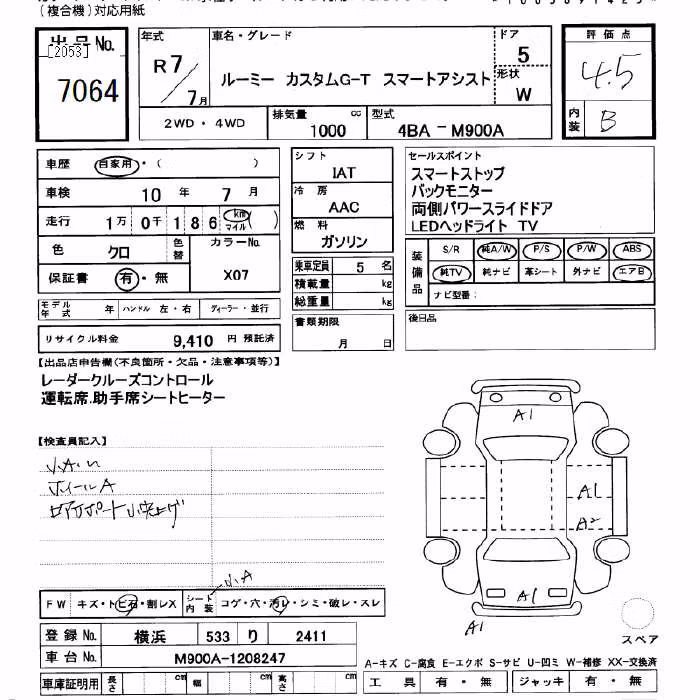 (複合機)対応用紙
出品No.
[2053]
7064
年式
R 7
7 月
車名・グレード
ルーミー カスタムG-T スマートアシスト
ドア
5
形状
W
評価点
4.5
内装
B
2WD・4WD
排気量
cc
1000
型式
4BA-M900A
車歴 自家用・( )
車検 10 年 7 月
走行 1万 0千 1 8 6 km マイル ( )
色 クロ
色替
カラーNo.
X07
保証書 有・無
モデル年式 年 ハンドル 左・右 ディーラー・並行
リサイクル料金 9,410 円 預託済
シフト
IAT
冷房
AAC
燃料
ガソリン
乗車定員 5 名
積載量 kg
総重量 kg
書類期限
月 日
セールスポイント
スマートストップ
バックモニター
両側パワースライドドア
LEDヘッドライト TV
装備品
S/R 純A/W P/S P/W ABS
純TV 純ナビ 革シート 外ナビ エアB
ナビ型番:
後日品
【出品店申告欄(不良箇所・欠品・注意事項等)】
レーダークルーズコントロール
運転席.助手席シートヒーター
【検査員記入】
ホイールA
A1
A1
A2
A1
A1
小A
FW キズ・トビ石・割レX
シート内装 コゲ・穴・汚レ・シミ・破レ・スレ
スペア
登録No. 横浜 533 り 2411
車台No. M900A-1208247
車庫証明用 長さ cm 幅 cm 高さ cm
A-キズ C-腐食 E-エクボ S-サビ U-凹ミ W-補修 XX-交換済
工具 有・無 ジャッキ 有・無